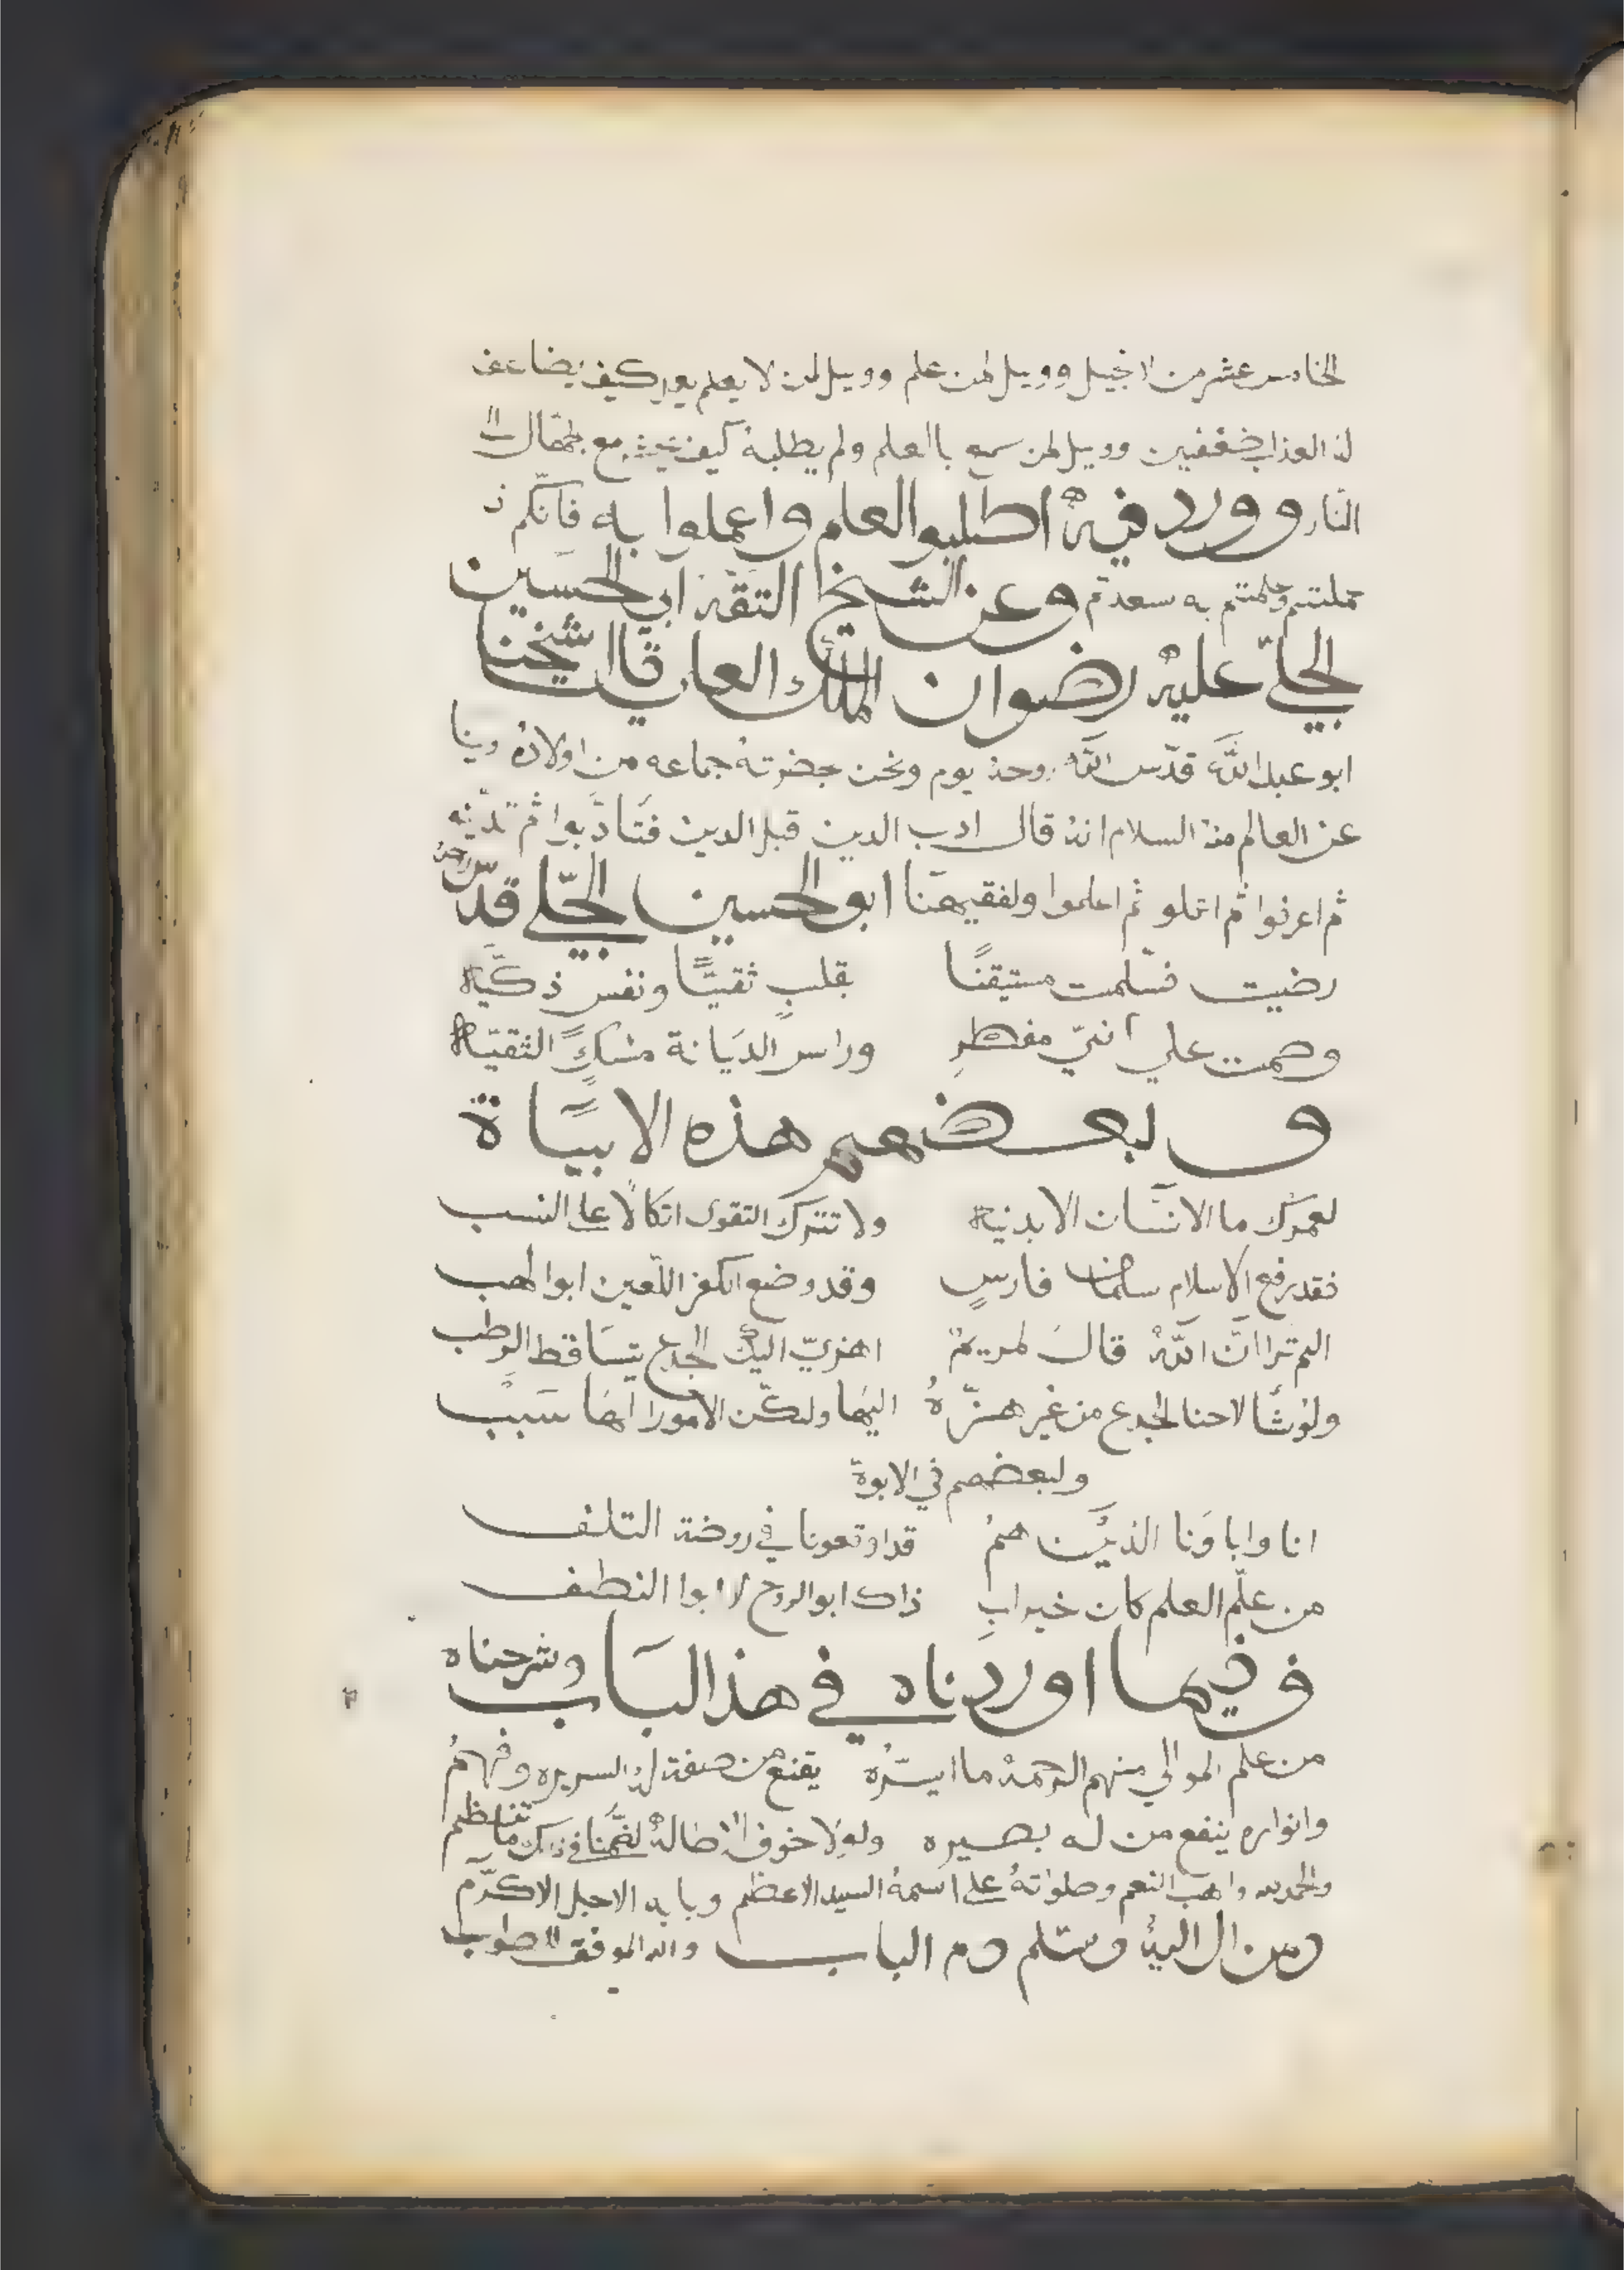 الخامس عشر من الانجيل وويل لمن علم وويل لمن لا يعلم كيف يضاعف
له العذاب ضعفين وويل لمن سمع بالعلم ولم يطلبه كيف مع الجهال الى
النار وورد فيه اطلبو العلم واعملوا به فانكم
به سعدتم وعن الشيخ التقه ابي الحسين
الجلي عليه رضوان الملك العلي قال شيخنا
ابو عبد الله قدس الله روحه يوم ونحن بحضرته جماعه من اولاده
عن العالم منه السلام انه قال ادب الدين قبل الدين فتادبوا ثم
ثم اعرفوا ثم ثم اعلموا ابو الحسين الجلي قدس روحه
رضيت فسلمت مستيقنًا بقلبٍ ثقيًا ونفس ذكيه
وصمت علي انني مفطرِ وراس الديانة التقيه
ولبعضهم هذه الابياة
لعمرك ما الانسان الا بدنيه ولا تترك التقوى اتكالا على النسب
فقد رفع الاسلام سلمان فارسٍ وقد وضع الكفر اللعين ابوا لهب
الم ترا ان الله قال لمريم اهزيّ اليك الجدع يتساقط الرطب
ولو شا لاحنا الجدع من غير هزّهُ اليها ولكن الامورا لها سبب
ولبعضهم في الابوة
انا واباونا الذين هم قد اوقعونا في روضة التلف
من علّم العلم كان خير ابِ ذاك ابو الروح لا ابوا النطف
ففيما اوردناه في هذ الباب وشرحناه
من علم الموالي منهم الرحمه ما ايسره يقنع من السريره وفهم
وانواره ينفع من له بصيره ولولا خوف الاطاله
والحمدلله واهب النعم وصلواته على اسمه السيد الاعظم وبابه الاجل الاكرم
ومن ال اليه وسلم الباب والله الموفق